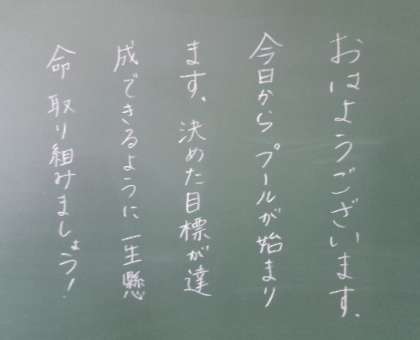 おはようございます。
今日から プールが始まり
ます。決めた目標が達
成できるように一生懸
命 取り組みましょう!